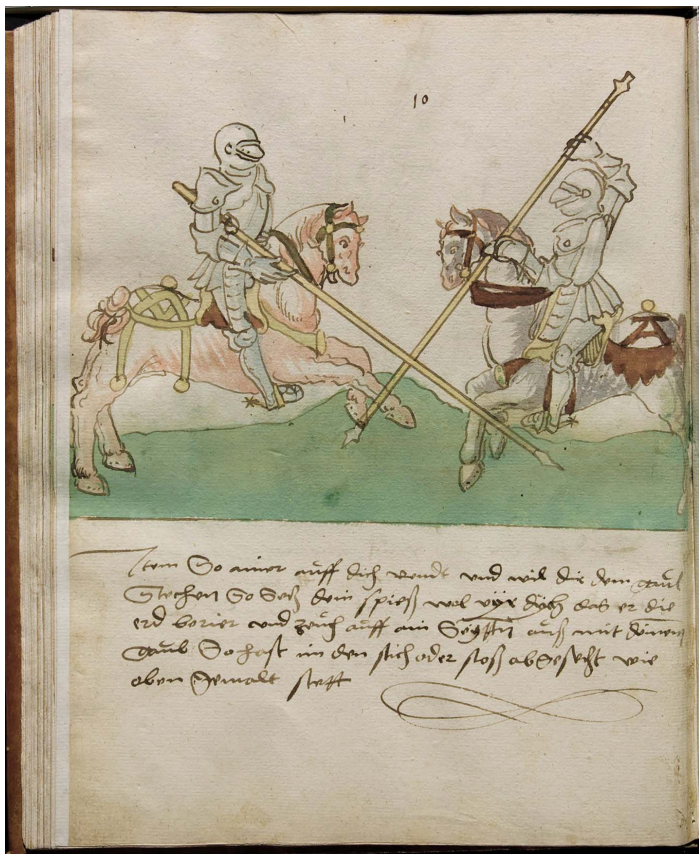 10
Item So ainer auff dich rendt und wil dir dein gaul
Stechen So Setz dein spieß wol vür dich das er die
erd berier und zeuch auff ain Seytten auß mit deinem
gaul So hast im den stich oder stoß abgesetzt wie
oben gemalt stett